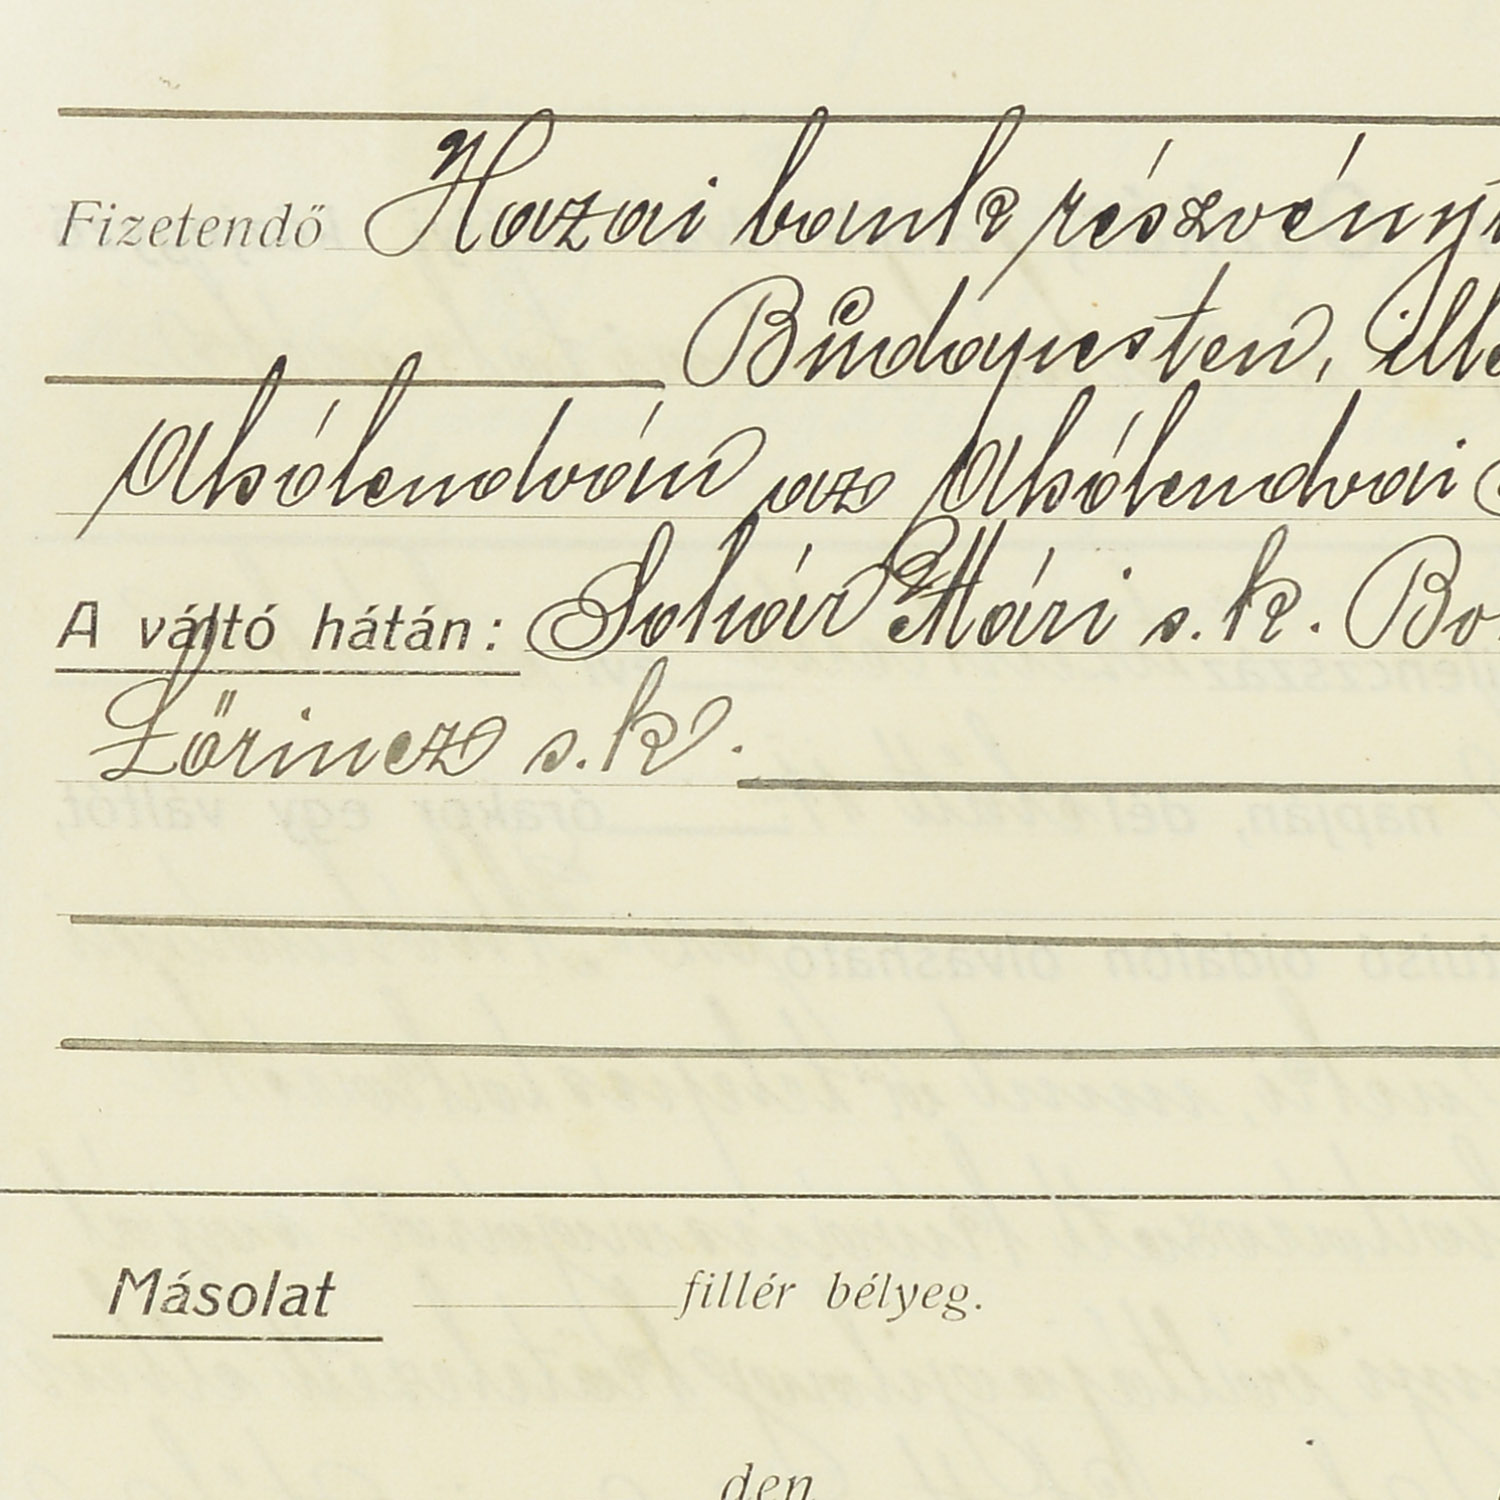 Fizetendő Hazai bank részvényt
Budapesten, ille
Alsólendván az Alsólendvai
A váltó hátán: Sohár Mári s. k. Bo
Lőrincz s. k.
Másolat fillér bélyeg.
den